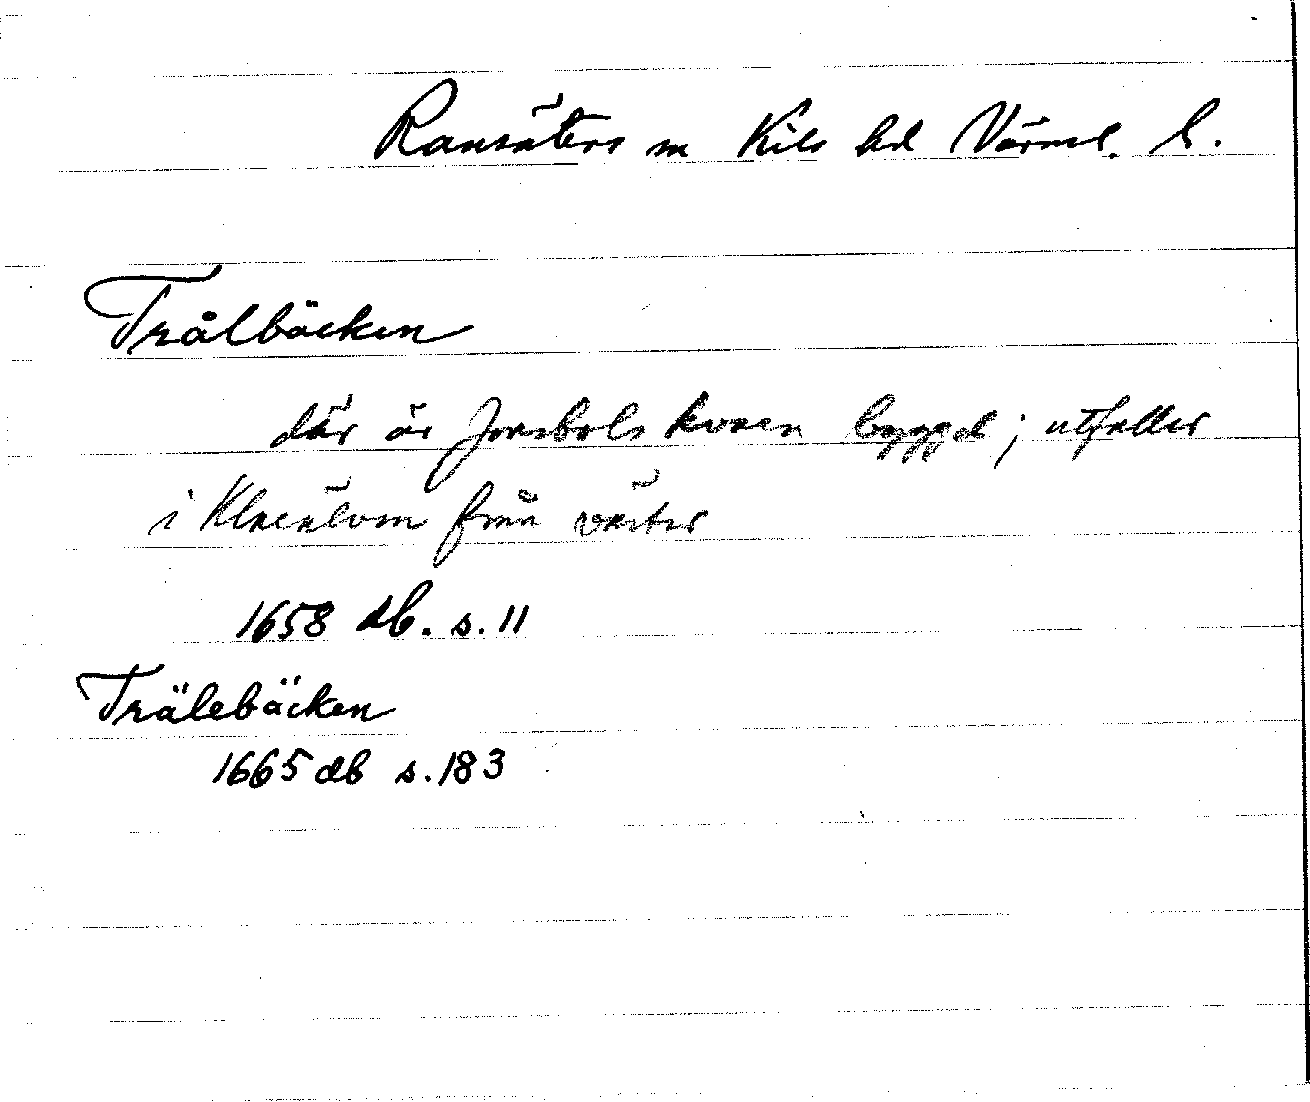 Ransäters sn Kils hd Värml. l.
Trålbäcken
där är Jonsbols kvarn byggd; utfaller
i Klarälven från väster
1658 db. s. 11
Trälebäcken
1665 db s. 183